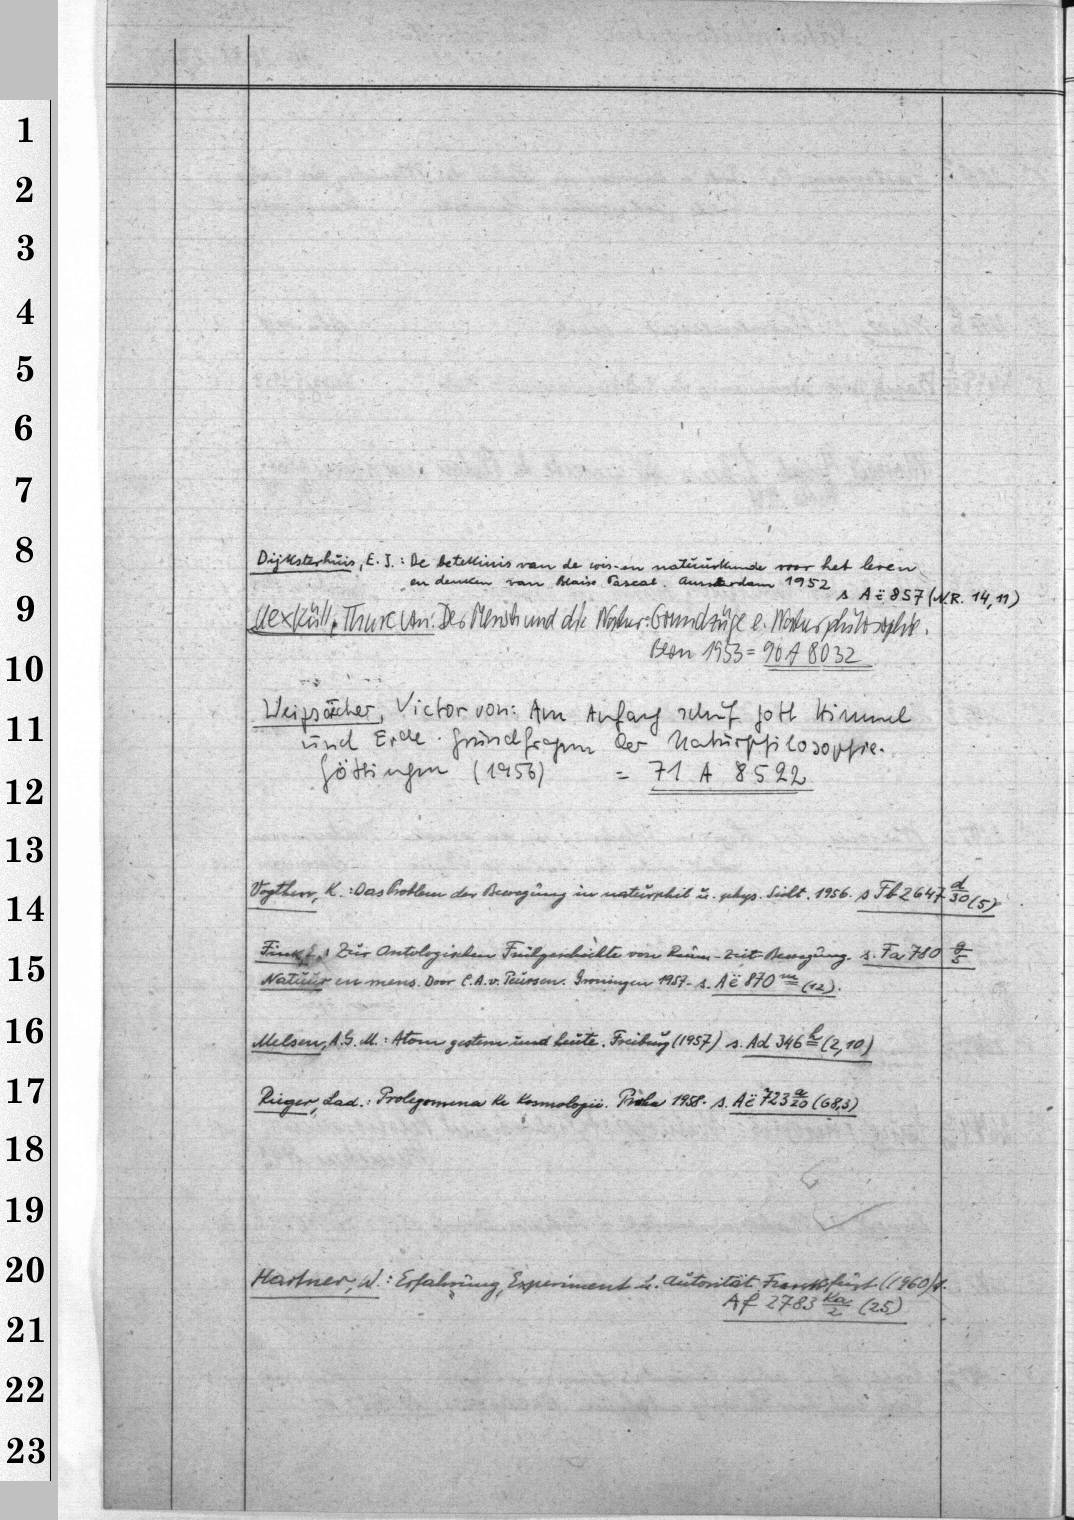 1
2
3
4
5
6
7
8
Dijksterhuis, E. J.: De betekinis van de wis-en natuurkunde voor het leven
en denken van Blaise Pascal. Amsterdam 1952
s Aë 857 (N.R. 14,11)
9
Uexküll, Thure von: Der Mensch und die Natur: Grundzüge e. Naturphilosophie.
Bern 1953 = 90 A 8032
10
11
Weizsäcker, Victor von: Am Anfang schuf Gott Himmel
und Erde. Grundfragen der Naturphilosophie.
Göttingen (1956) = 71 A 8522
12
13
14
Vogtherr, K.: Das Problem der Bewegung in naturphil. u. phys. Sicht. 1956. s Fb 2647 d/30 (5)
Fink, E.: Zur Ontologischen Frühgeschichte von Raum-Zeit-Bewegung. s. Fa 780 g/5
15
Natuur en mens. Door C.A.v. Peursen. Groningen 1957. s. Aë 870 m (12).
16
Melsen, A.G.M.: Atom gestern und heute. Freiburg (1957) s. Ad 346 h (2,10)
17
Rieger, Lad.: Prolegomena ke Kosmologii. Praha 1958. s. Aë 723 a/20 (68,3)
18
19
20
Hartner, W.: Erfahrung, Experiment u. Autorität. Frankfurt (1960) s.
Af 2783 ka/2 (25)
21
22
23